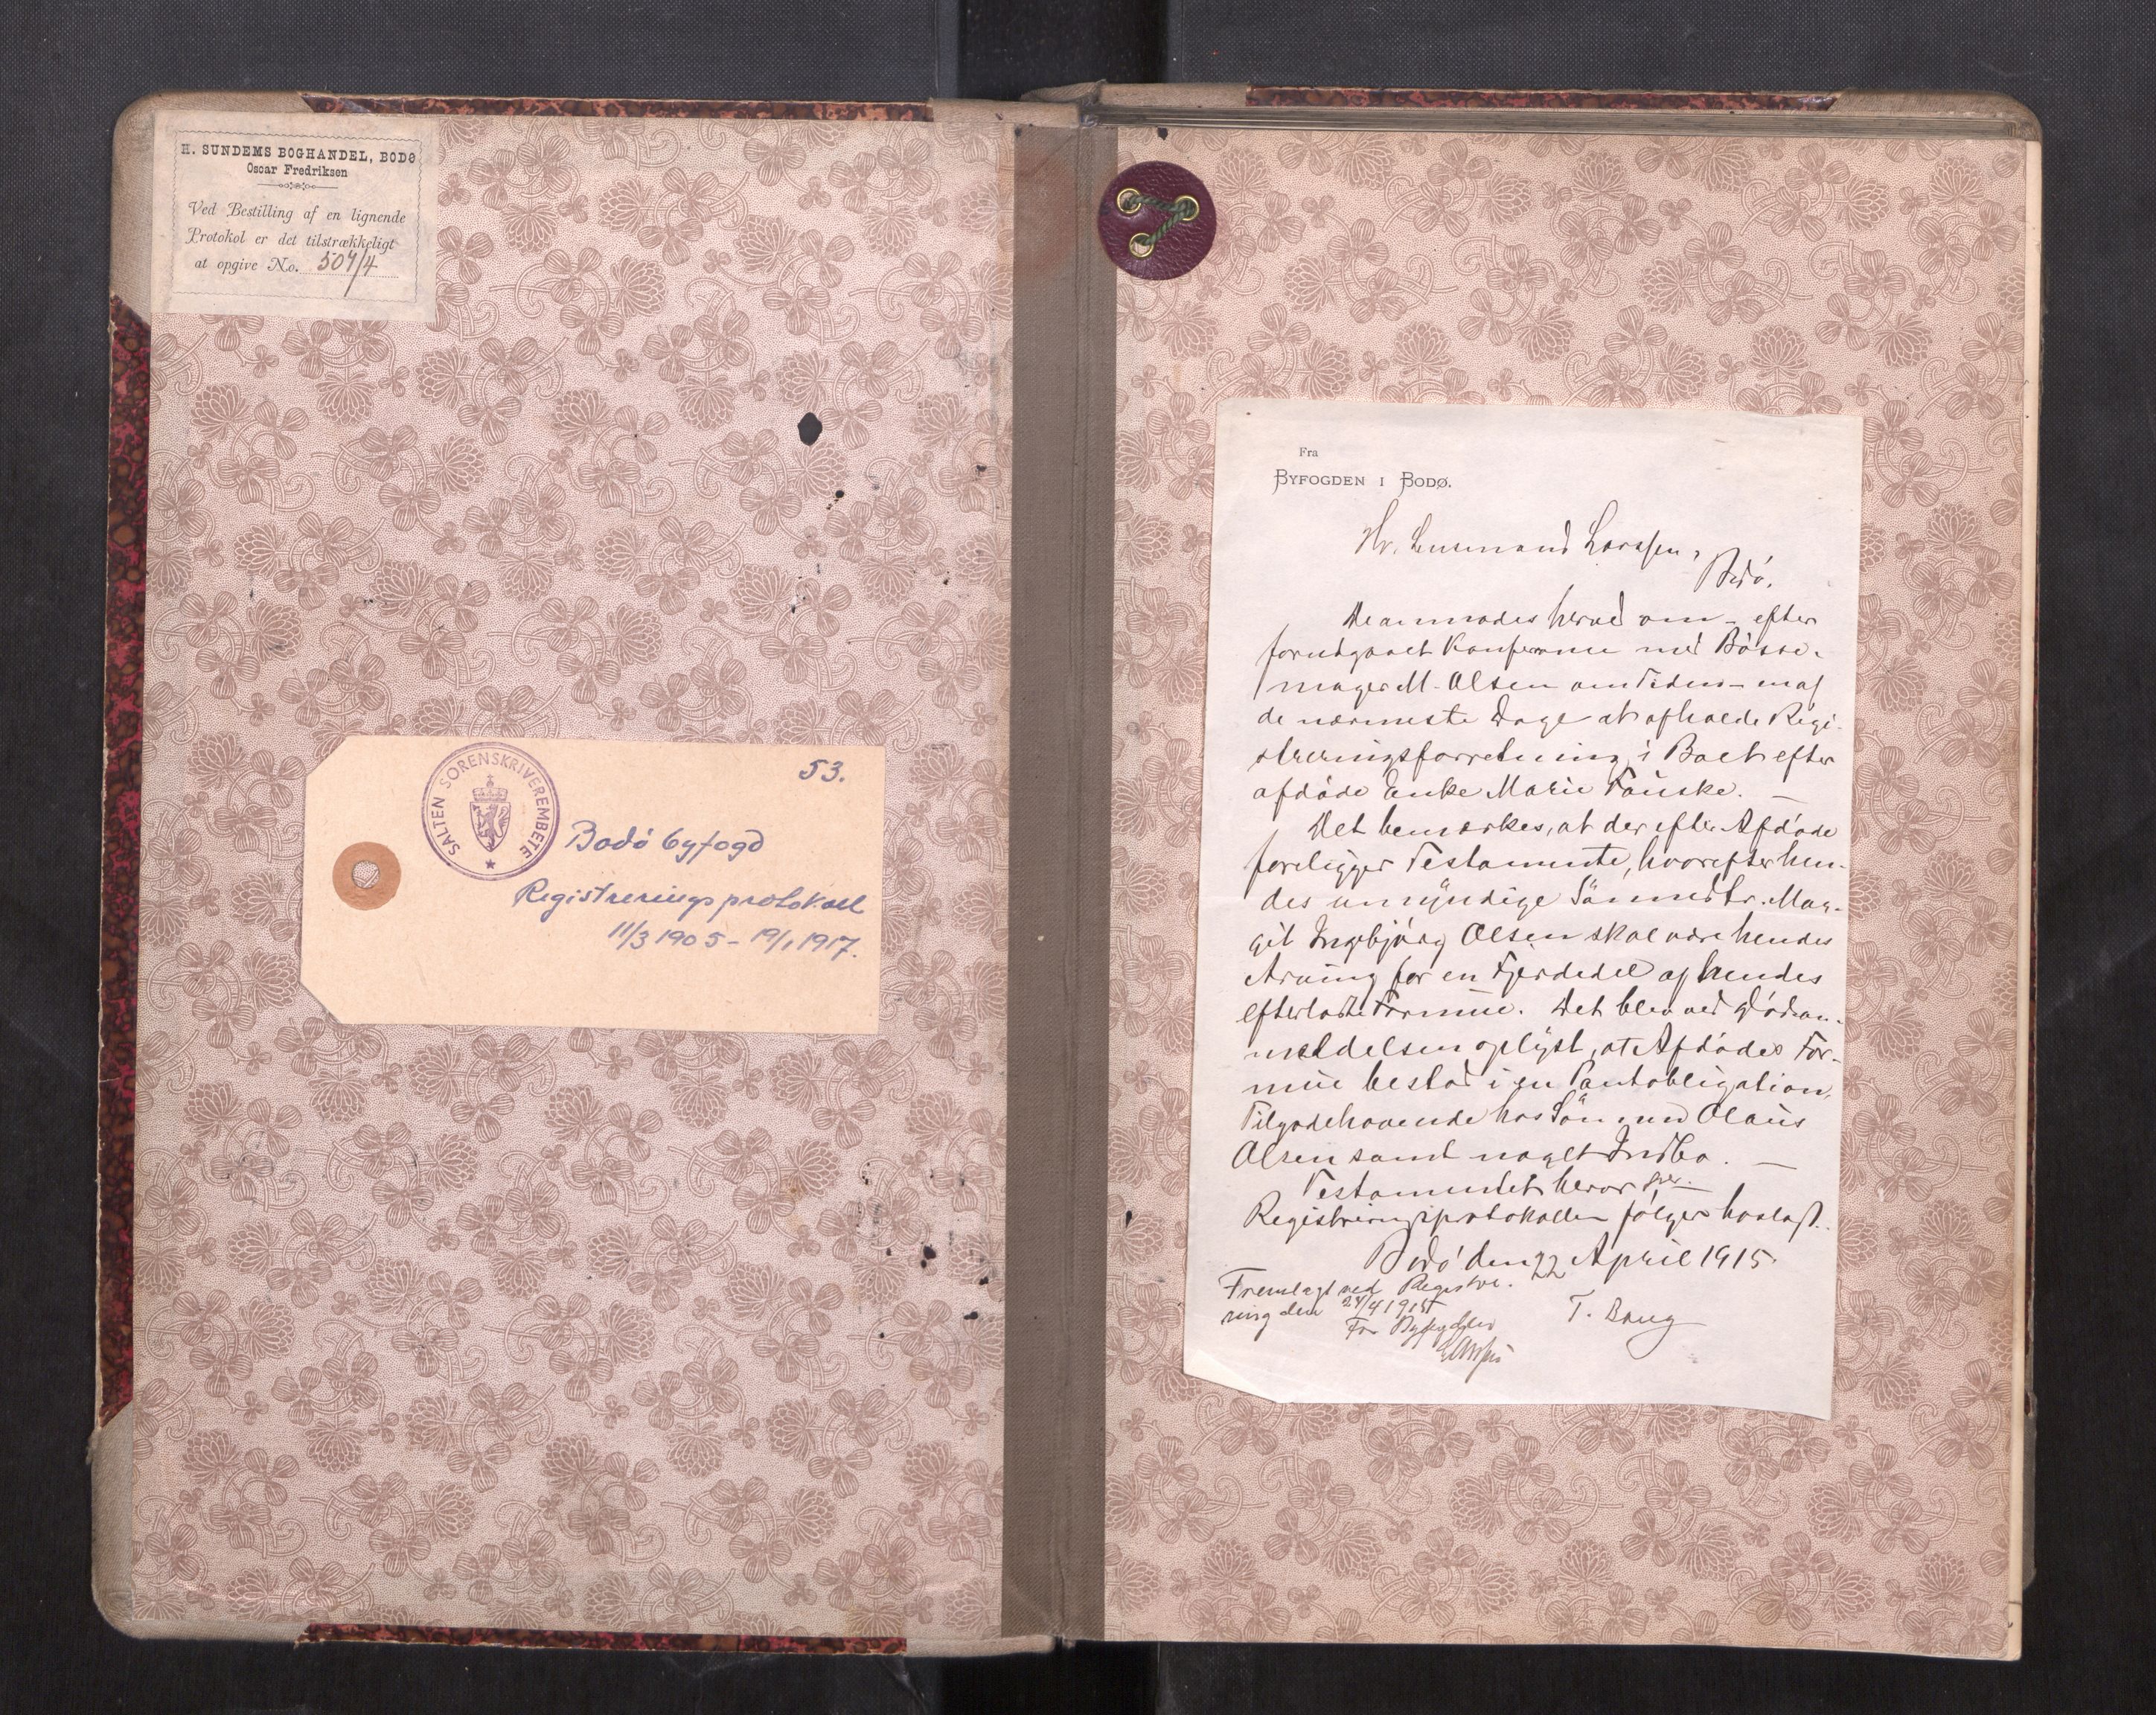 H. SUNDEMS BOGHANDEL, BODØ
Oscar Fredriksen
Ved Bestilling af en lignende
Protokol er det tilstrækkeligt
at opgive No. 504/4
SALTEN SORENSKRIVEREMBETE
53.
Bodö byfogd
Registreringsprotokoll
11/3 1905 - 19/1 1917.
Fra
BYFOGDEN I BODØ.
Hr. Lensmand Larssen,
Bodö.
De anmodes herved om - efter
forudgaaet Konferanse med Bösse-
mager M. Olsen om Tiden - en af
de nærmeste Dage at afholde Regi-
streringsforretning i Boet efter
afdöde Enke Marie Fauske. —
Det bemærkes, at der efter Afdöde
foreligger Testamente, hvorefter hen-
des umyndige Sönnedtr. Mar-
git Ingebjörg Olsen skal være hendes
Arving for en Fjerdedel af hendes
efterladte Formue. Det blev ved Dödsan-
meldelsen oplyst, at Afdödes For-
mue bestod i en Pantobligation,
Tilgodehavende hos Sönnen Olaus
Olsen samt noget Indbo. —
Testamentet beror her. —
Registreringsprotokollen fölger hoslagt.
Bodö den 22 April 1915.
T. Baug
Fremlagt ved Registre-
ring den 24/4 1915
For Byfogden
Larssen